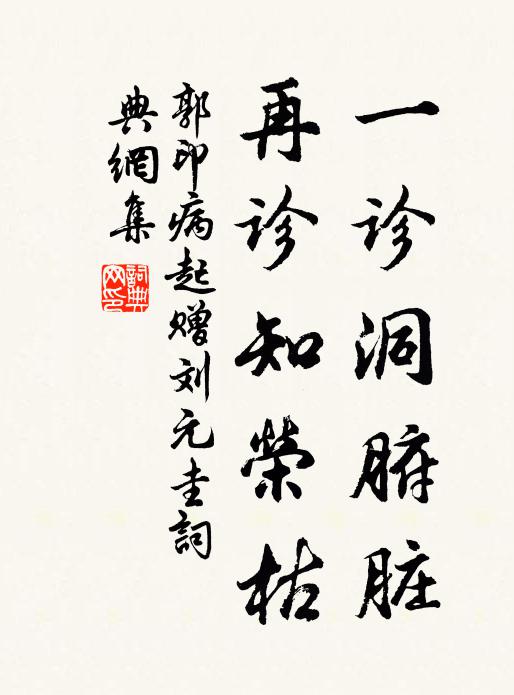 一诊洞腑脏
再诊知榮枯
郭印病起赠刘元圭詞
典網集
詞典
网印